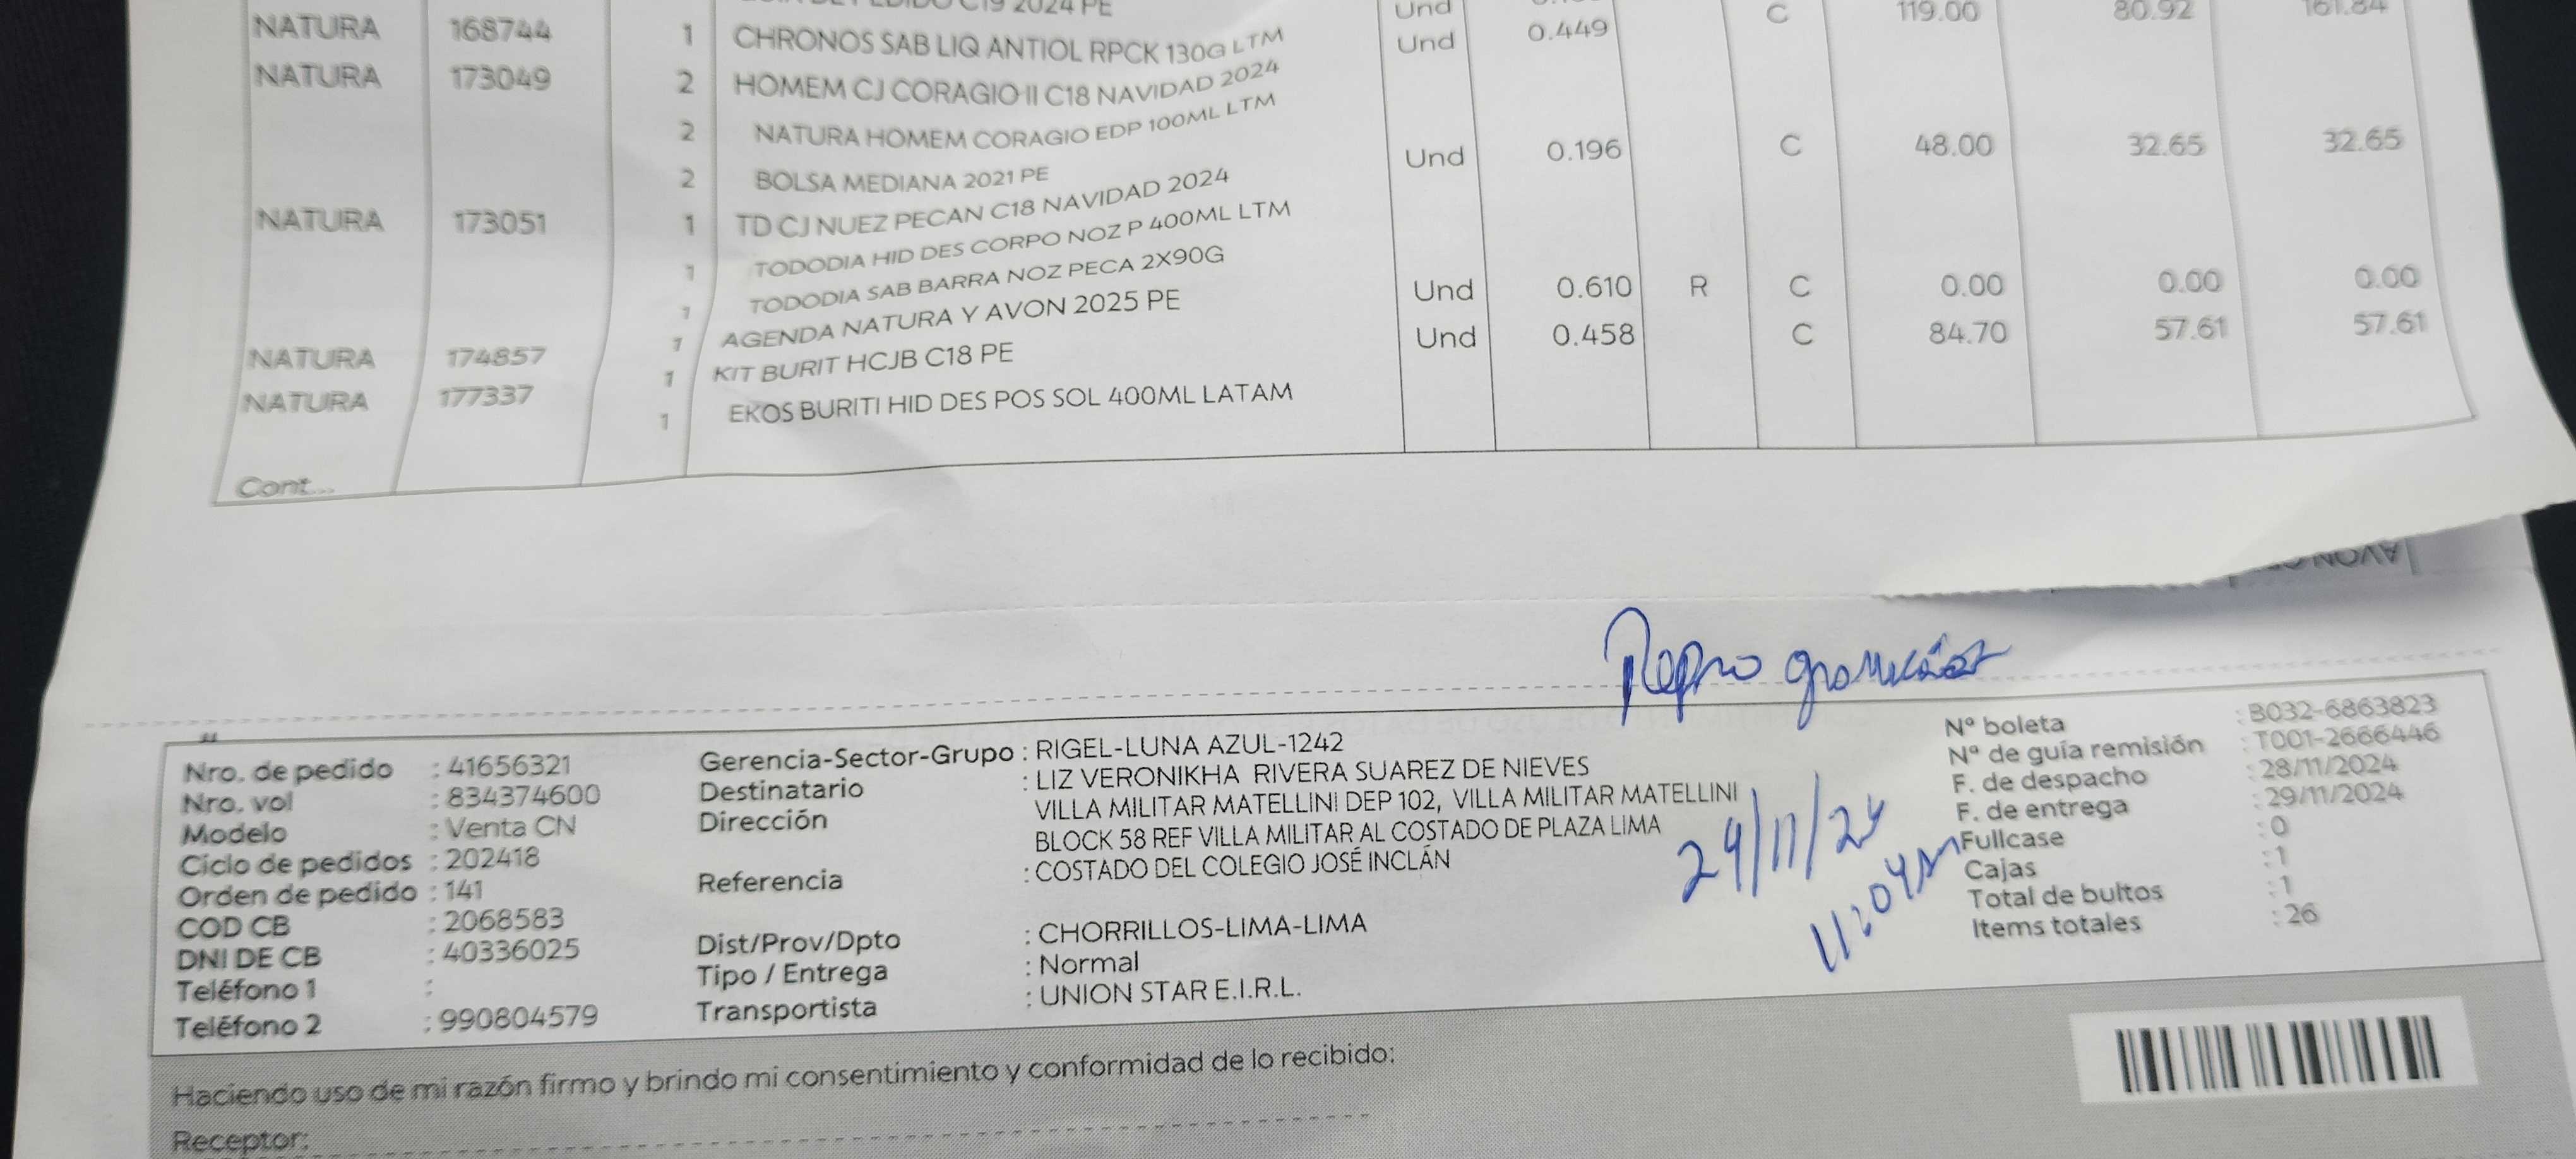 2024 PE
NATURA 168744 1 CHRONOS SAB LIQ ANTIOL RPCK 130G LTM Und 0.449 C 119.00 80.92 161.84
NATURA 173049 2 HOMEM CJ CORAGIO II C18 NAVIDAD 2024 Und
2 NATURA HOMEM CORAGIO EDP 100ML LTM
2 BOLSA MEDIANA 2021 PE Und 0.196 C 48.00 32.65 32.65
NATURA 173051 1 TD CJ NUEZ PECAN C18 NAVIDAD 2024
1 TODODIA HID DES CORPO NOZ P 400ML LTM
1 TODODIA SAB BARRA NOZ PECA 2X90G
NATURA 174857 1 AGENDA NATURA Y AVON 2025 PE Und 0.610 R C 0.00 0.00 0.00
NATURA 177337 1 KIT BURIT HCJB C18 PE Und 0.458 C 84.70 57.61 57.61
1 EKOS BURITI HID DES POS SOL 400ML LATAM
Cont...
Repro
Nro. de pedido : 41656321
Nro. vol : 834374600
Modelo : Venta CN
Ciclo de pedidos : 202418
Orden de pedido : 141
COD CB : 2068583
DNI DE CB : 40336025
Teléfono 1 :
Teléfono 2 : 990804579
Gerencia-Sector-Grupo : RIGEL-LUNA AZUL-1242
Destinatario : LIZ VERONIKHA RIVERA SUAREZ DE NIEVES
Dirección VILLA MILITAR MATELLINI DEP 102, VILLA MILITAR MATELLINI
BLOCK 58 REF VILLA MILITAR AL COSTADO DE PLAZA LIMA
Referencia : COSTADO DEL COLEGIO JOSÉ INCLÁN
Dist/Prov/Dpto : CHORRILLOS-LIMA-LIMA
Tipo / Entrega : Normal
Transportista : UNION STAR E.I.R.L.
29/11/24
Nº boleta : B032-6863823
Nº de guía remisión : T001-2666446
F. de despacho : 28/11/2024
F. de entrega : 29/11/2024
Fullcase : 0
Cajas : 1
Total de bultos : 1
Items totales : 26
Haciendo uso de mi razón firmo y brindo mi consentimiento y conformidad de lo recibido:
Receptor: